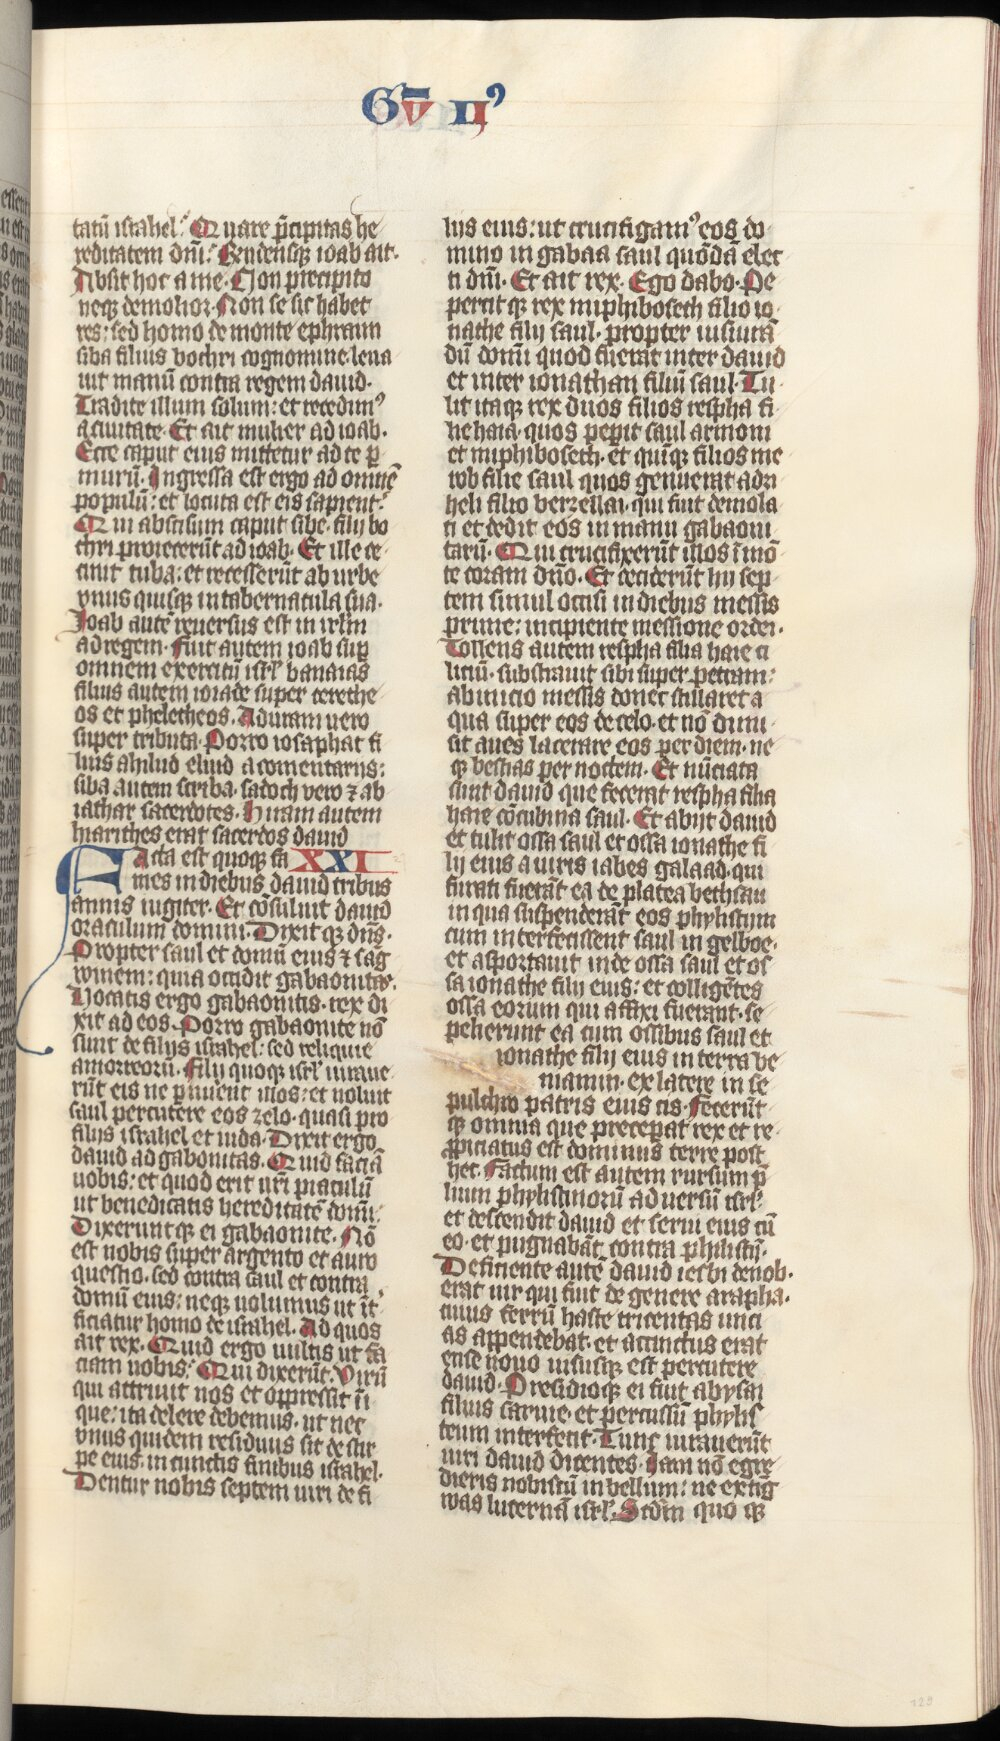 Gv̄ IIꝰ
tatū israhel. Quare p̄cipitas he
reditatem dn̄i. Rn̄densqꝫ ioab ait.
Absit hoc a me. Non precipito
neqꝫ demolior. Non se sic habet
res: sed homo de monte ephraim
siba filius bochri cognomine. leua
uit manū contra regem dauid.
Tradite illum solum: et recedimꝰ
a ciuitate. Et ait mulier ad ioab.
Ecce caput eius mittetur ad te ꝑ
murū. Ingressa est ergo ad omnē
populū: et locuta est eis sapient̄.
Qui abscisum caput sibe. filij bo
chri proiecerūt ad ioab. Et ille ce
cinit tuba: et recesserūt ab urbe
vnus quisqꝫ in tabernacula sua.
Ioab autē reuersus est in irl̄m
ad regem. Fuit autem ioab suꝑ
omnem exercitū isrl̄ banaias
filius autem ioiade super cerethe
os et pheletheos. Aduram uero
super tributa. Porro iosaphat fi
lius ahilud eliud a comentarijs:
siba autem scriba. sadoch vero ⁊ ab
iathar sacerdotes. Hiram autem
hiarithes erat sacerdos dauid
Facta est quoqꝫ fa XXI
mes in diebus dauid tribus
annis iugiter. Et cōsuluit dauid
oraculum domini. Dixit qꝫ dn̄s.
Propter saul et domū eius ⁊ sāg
winem: quia occidit gabaonitas.
Vocatis ergo gabaonitis. rex di
xit ad eos. Porro gabaonite nō
sunt de filijs israhel: sed reliquie
amorreorū. Filij quoqꝫ isrl̄ iuraue
rūt eis ne ꝑimerent illos: et uoluit
saul percutere eos zelo. quasi pro
filijs israhel et iuda. Dixit ergo
dauid ad gabonitas. Quid faciā
uobis: et quod erit ur̄i piaculū
ut benedicatis hereditatē domī.
Dixeruntqꝫ ei gabaonite. Nō
est nobis super argento et auro
questio. sed contra saul et contra
domū eius: neqꝫ uolumus ut īt
ficiatur homo de israhel. Ad quos
ait rex. Quid ergo vultis ut fa
ciam uobis. Qui dixerūt. Virū
qui attriuit nos et oppressit īi
que: ita delere debemus. ut nec
vnus quidem residuus sit de stir
pe eius. in cunctis finibus israhel.
Dentur nobis septem uiri de fi
lijs eius: ut crucifigamꝰ eos do
mino in gabaa saul quōdā elec
ti dn̄i. Et ait rex. Ego dabo. Pe
percit qꝫ rex miphiboseth filio io
nathe filij saul. propter iusiurā
dū domī quod fuerat inter dauid
et inter ionathan filiū saul. Tu
lit itaqꝫ rex duos filios respha fi
lie haia. quos peperit saul armoni
et miphiboseth. et quīqꝫ filios mi
cob filie saul quos genuerat adri
heli filio berzellai. qui fuit de mola
ti et dedit eos in manu gabaoni
tarū. Qui crucifixerūt illos ī mō
te coram dn̄o. Et ceciderūt hij sep
tem simul occisi in diebus messis
prime: incipiente messione ordei.
Tollens autem respha filia haie ci
liciū. substrauit sibi super petram:
ab inicio messis donec stillaret a
qua super eos de celo. et nō dimi
sit aues lacerare eos per diem. ne
qꝫ bestias per noctem. Et nūciata
sunt dauid que fecerat respha filia
haie cōcubina saul. Et abijt dauid
et tulit ossa saul et ossa ionathe fi
lij eius a uiris iabes galaad. qui
furati fuerāt ea de platea bethsan
in qua suspenderāt eos phylistijm
cum interfecissent saul in gelboe.
et asportauit inde ossa saul et os
sa ionathe filij eius: et colligētes
ossa eorum qui affixi fuerant. se
pelierunt ea cum ossibus saul et
ionathe filij eius in terra be
niamin. ex latere in se
pulchro patris eius cis. Fecerūt
qꝫ omnia que preceperat rex et re
ꝓpiciatus est dominus terre post
hec. Factum est autem rursum p̄
lium phylistinorū aduersū isrl̄.
et descendit dauid et serui eius cū
eo. et pugnabāt contra philistī.
Deficiente autē dauid iesbi denob.
erat uir qui fuit de genere arapha.
cuius ferrū haste tricentas unci
as appendebat. et accinctus erat
ense nouo nisusqꝫ est percutere
dauid. Presidioqꝫ ei fuit abysai
filius saruie. et percussū phylis
teum interfecit. Tunc iurauerūt
uiri dauid dicentes. Iam nō egre
dieris nobiscū in bellum: ne extīg
was lucernā isrl̄. Scdm̄ quo qꝫ
129